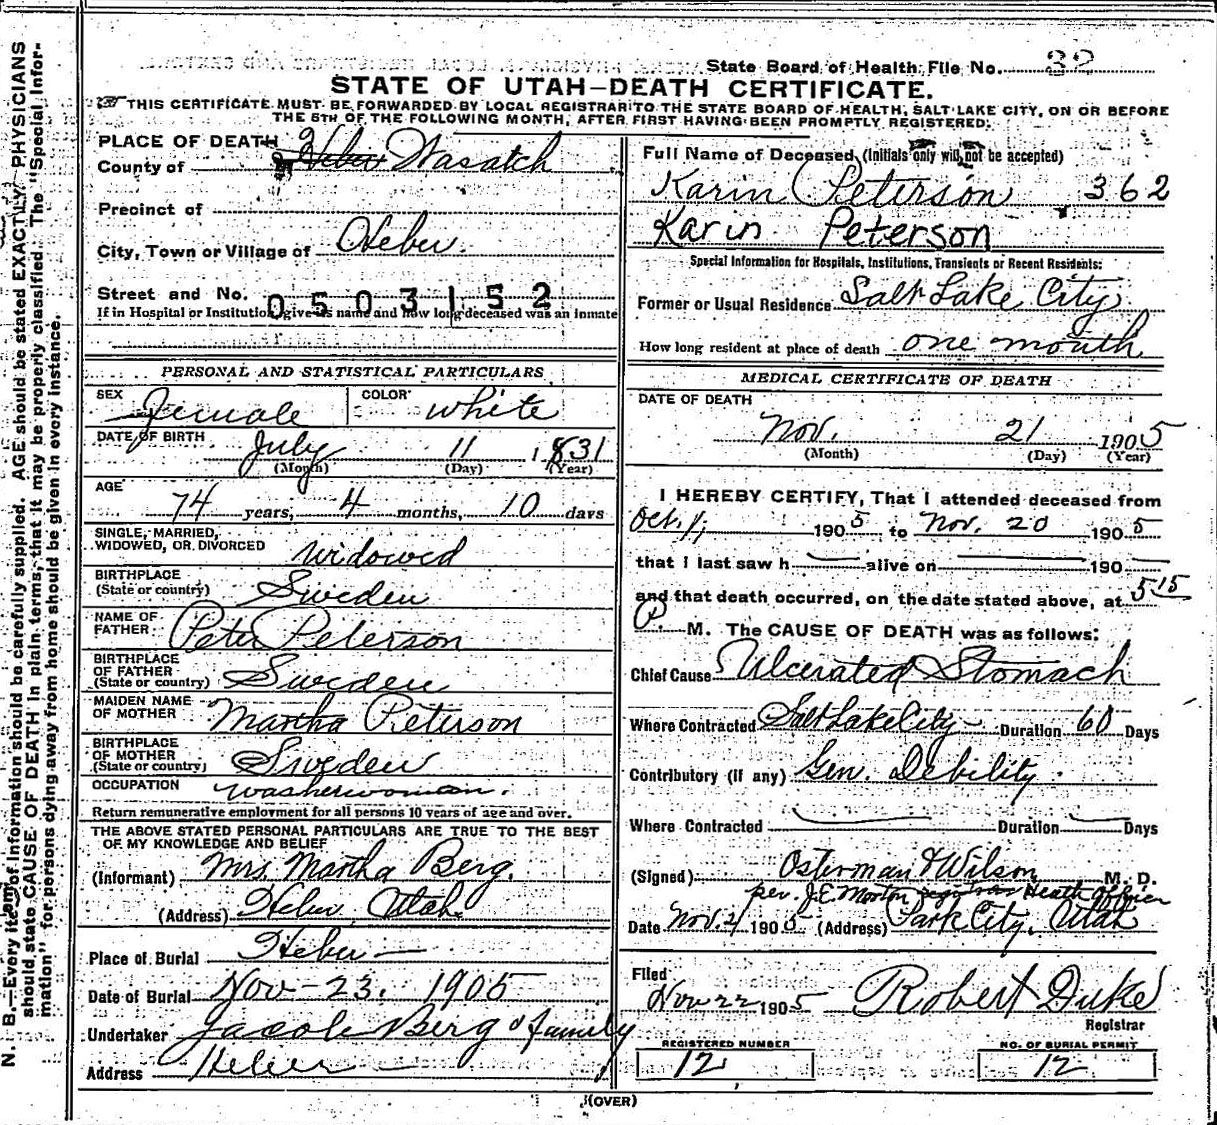 State Board of Health File No. 32
STATE OF UTAH—DEATH CERTIFICATE.
THIS CERTIFICATE MUST BE FORWARDED BY LOCAL REGISTRAR TO THE STATE BOARD OF HEALTH, SALT LAKE CITY, ON OR BEFORE
THE 5TH OF THE FOLLOWING MONTH, AFTER FIRST HAVING BEEN PROMPTLY REGISTERED.
PLACE OF DEATH
County of Heber Wasatch
Precinct of
City, Town or Village of Heber
Street and No. 0503152
If in Hospital or Institution, give its name and how long deceased was an inmate
PERSONAL AND STATISTICAL PARTICULARS
SEX Female COLOR White
DATE OF BIRTH July 11 1831
(Month) (Day) (Year)
AGE
74 years, 4 months, 10 days
SINGLE, MARRIED,
WIDOWED, OR DIVORCED Widowed
BIRTHPLACE
(State or country) Sweden
NAME OF
FATHER Peter Peterson
BIRTHPLACE
OF FATHER
(State or country) Sweden
MAIDEN NAME
OF MOTHER Martha Peterson
BIRTHPLACE
OF MOTHER
(State or country) Sweden
OCCUPATION washerwoman.
Return remunerative employment for all persons 10 years of age and over.
THE ABOVE STATED PERSONAL PARTICULARS ARE TRUE TO THE BEST
OF MY KNOWLEDGE AND BELIEF
(Informant) Mrs. Martha Berg.
(Address) Heber, Utah.
Place of Burial Heber
Date of Burial Nov - 23. 1905
Undertaker Jacob Berg & family
Address Heber
Full Name of Deceased (Initials only will not be accepted)
Karin Peterson 362
Karin Peterson
Special Information for Hospitals, Institutions, Transients or Recent Residents:
Former or Usual Residence Salt Lake City
How long resident at place of death one month
MEDICAL CERTIFICATE OF DEATH
DATE OF DEATH
Nov. 21 1905
(Month) (Day) (Year)
I HEREBY CERTIFY, That I attended deceased from
Oct. 1, 1905 to Nov. 20 1905
that I last saw h alive on 190
and that death occurred, on the date stated above, at 5 15
P. M. The CAUSE OF DEATH was as follows:
Chief Cause Ulcerated Stomach
Where Contracted Salt Lake City Duration 60 Days
Contributory (if any) Gen. Debility.
Where Contracted Duration Days
(Signed) Osterman & Wilson M. D.
per. J.E. Morton Health Officer
Date Nov. 21 1905 (Address) Park City, Utah
Filed
Nov 22 1905 Robert Duke
Registrar
REGISTERED NUMBER
12
NO. OF BURIAL PERMIT
12
(OVER)
N. B.—Every item of information should be carefully supplied. AGE should be stated EXACTLY. PHYSICIANS
should state CAUSE OF DEATH in plain terms, that it may be properly classified. The "Special Infor-
mation" for persons dying away from home should be given in every instance.